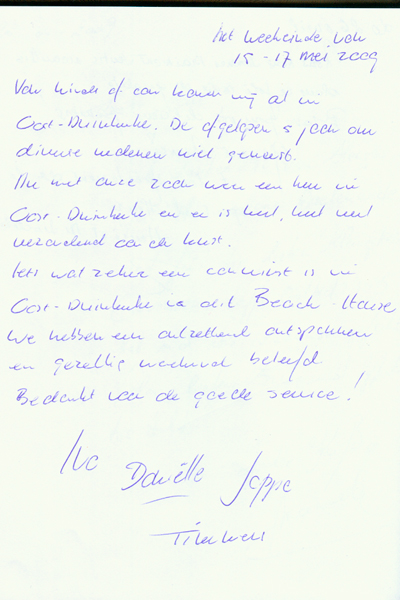 het weekeinde van
15 - 17 mei 2009
Van kinds af aan komen wij al in
Oost-Duinkerke. De afgelopen 5 jaar om
diverse redenen niet geweest.
Nu met onze zoon weer een keer in
Oost-Duinkerke en er is heel, heel veel
veranderd aan de kust.
Iets wat zeker een aanwinst is in
Oost-Duinkerke is dit Beach-House
We hebben een ontzettend ontspannen
en gezellig weekend beleefd
Bedankt voor de goede service!
Daniëlle Jeppe